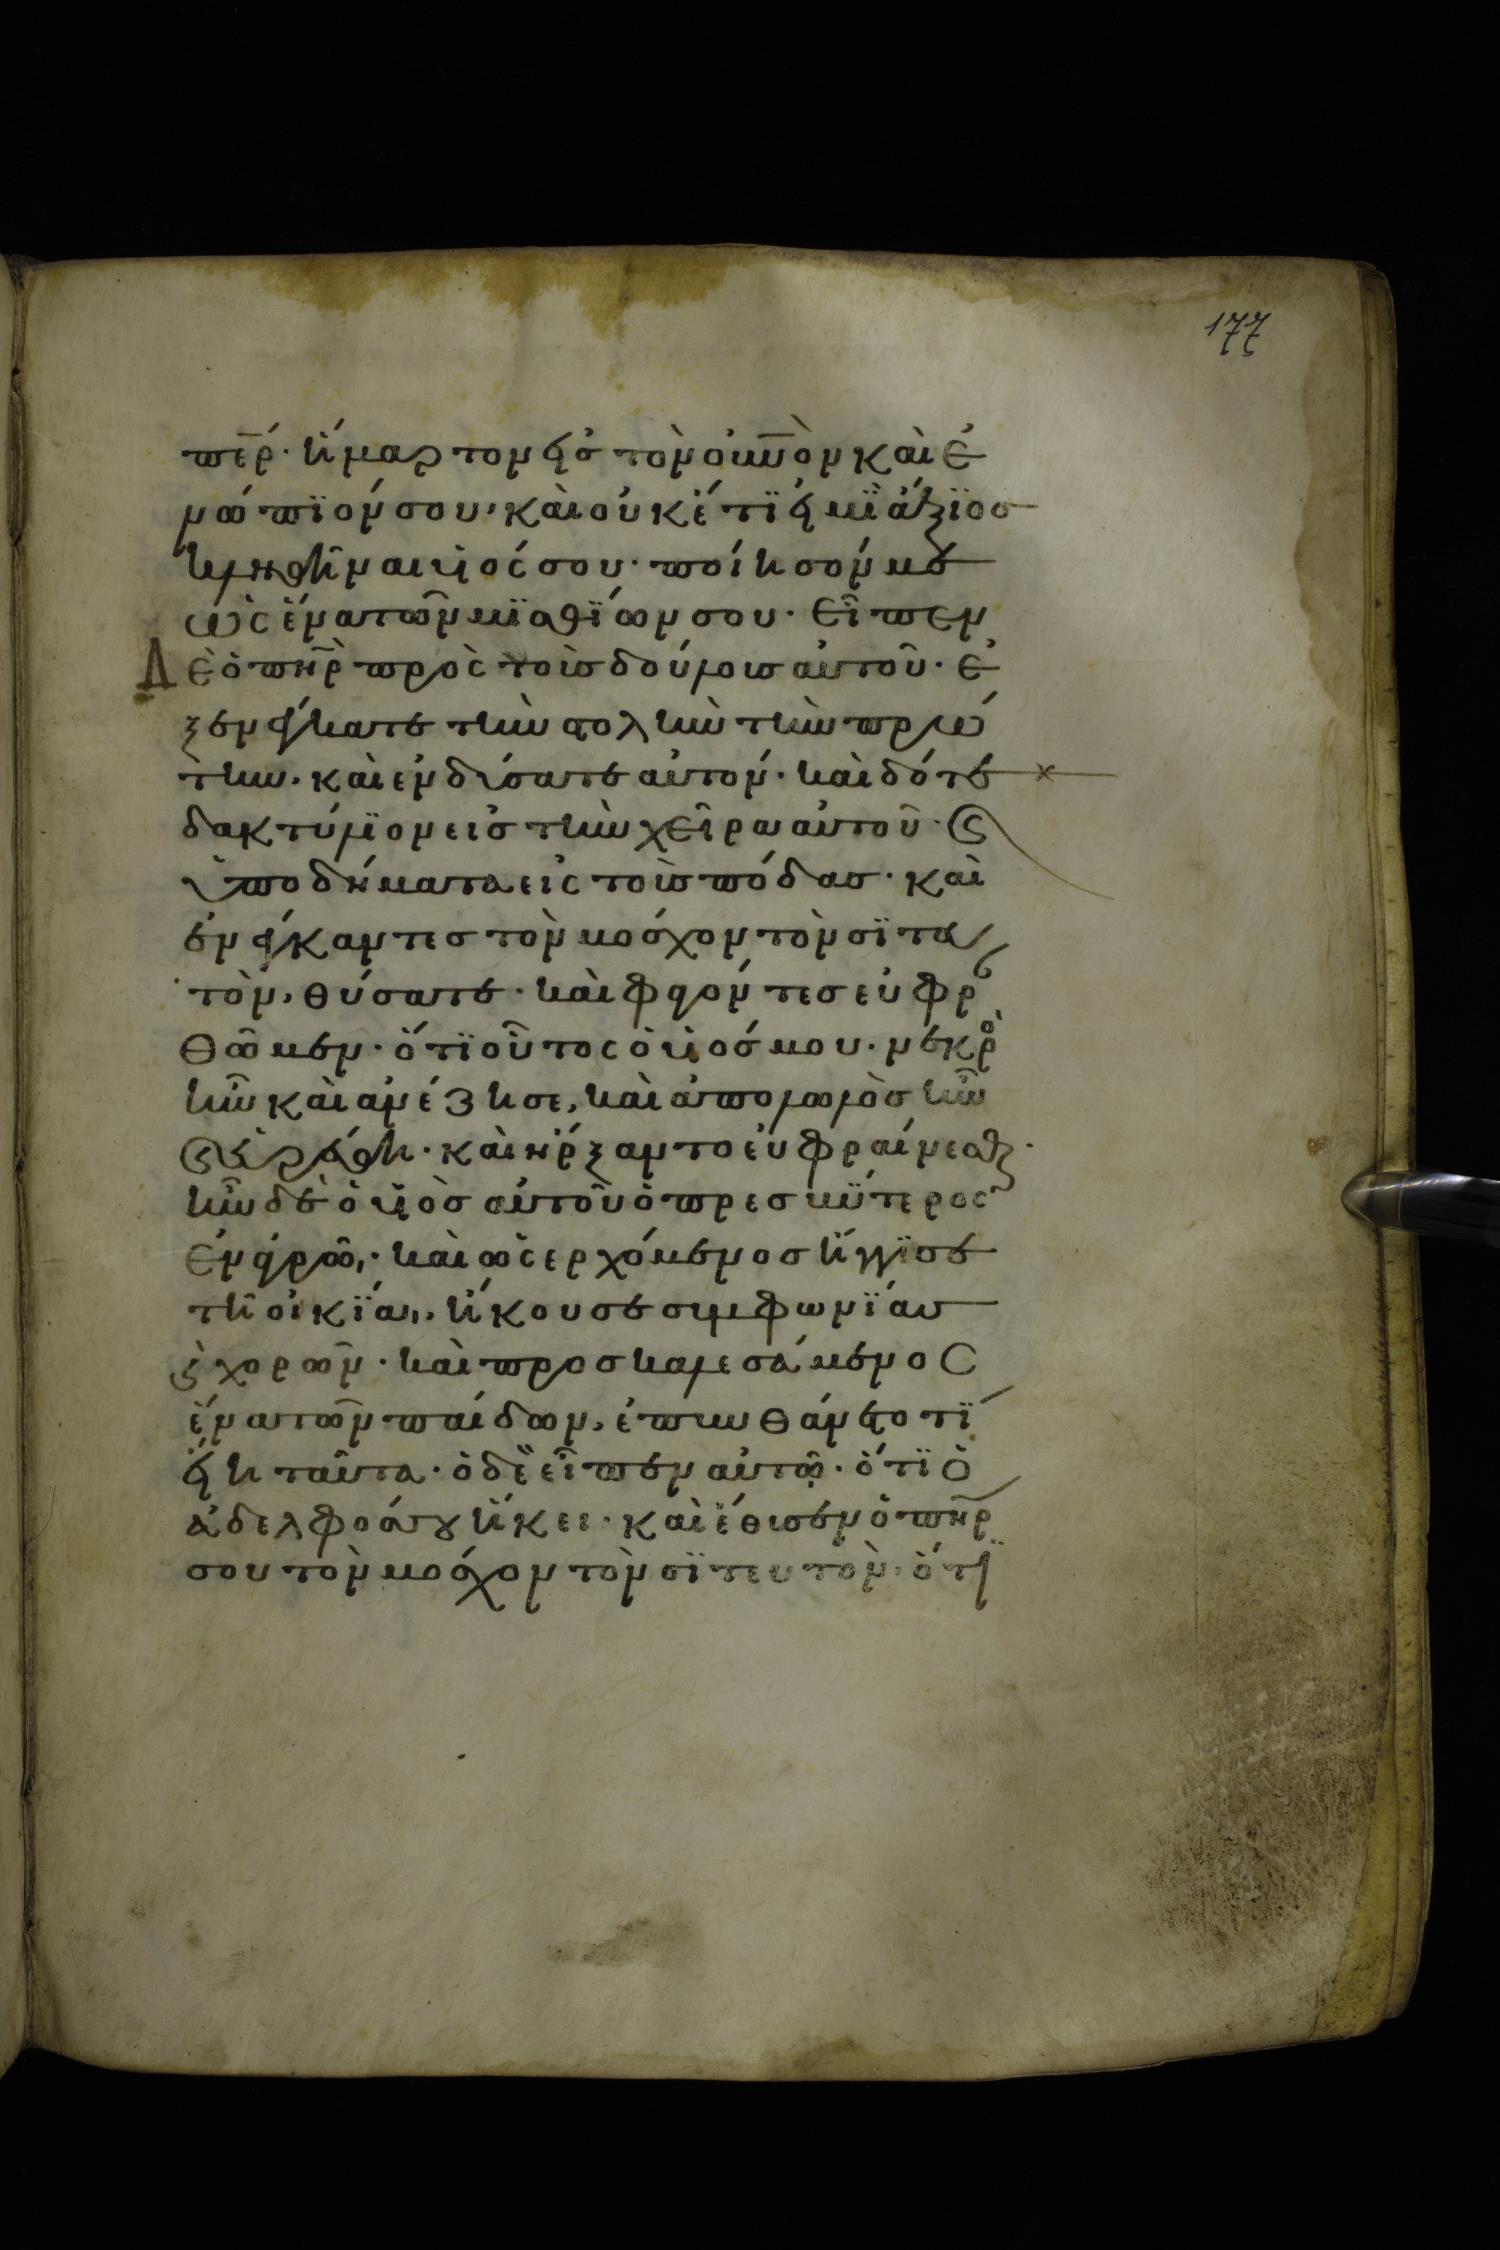 177
πε̅ρ· ἥμαρτον εἰς τὸν οὐνο̅ν καὶ ἐ
νώπϊόν σου, καὶ οὐκέτϊ εἰμῒ ἄξϊος
κληθῆναι υἱός σου· ποίησόν με
ὡς ἕνα τῶν μϊσθΐων σου· εἶπεν
Δὲ ὁ πη̅ρ πρὸς τοὺς δούλους αὐτοῦ· ἐ
ξενέγκατε τὴν στολὴν τὴν πρώ
την· καὶ ενδύσατε αὐτόν· καὶ δότε
δακτύλϊον εἰς τὴν χεῖρα αὐτοῦ· κ(αὶ)
ὑποδήματα εἰς τοὺς πόδας· καὶ
ἐνέγκαντες τὸν μόσχον τὸν σϊτευ
τὸν, θύσατε· καὶ φαγόντες εὐφραν
θῶμεν· ὅτϊ οὗτος ὁ υἱός μου· νεκρὸ(ς)
ἦν καὶ ανέζησε, καὶ ἀπολωλὸς ἦν
κ(αὶ) εὑρέθη· καὶ ἤρξαντο εὐφραίνεσθαι·
ἦν δὲ ὁ υἱὸς αὐτοῦ ὁ πρεσβΰτερος
ἐν ἀγρῶ,· καὶ ὡς ερχόμενος ἤγγϊσε
τῆ οἰκϊα,, ἤκουσε συμφωνϊάσ
κ(αὶ) χορῶν· καὶ προσκαλεσάμενος
ἕνα τῶν παίδων, ἐπυνθάνετο τϊ
εἴη ταῦτα· ὁ δὲ εἶπεν αὐτῶ· ὅτϊ ὁ
ἀδελφός σου ἥκει· καὶ ἔθυσεν ὁ πη̅ρ
σου τὸν μόσχον τὸν σϊτευτὸν, ὅτϊ